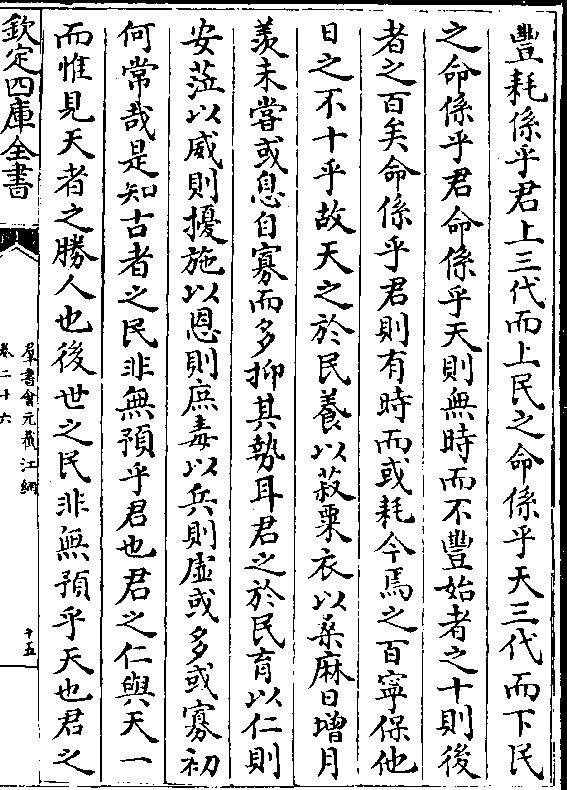 豐耗係乎君上三代而上民之命係乎天三代而下民
之命係乎君命係乎天則無時而不豐始者之十則後
者之百矣命係乎君則有時而或耗今焉之百寧保他
日之不十乎故天之於民養以菽粟衣以桑麻日增月
羡未嘗或息自寡而多抑其勢耳君之於民育以仁則
安蒞以威則擾施以恩則庶毒以兵則虛或多或寡初
何常哉是知古者之民非無預乎君也君之仁與天一
而惟見天者之勝人也後世之民非無預乎天也君之
欽定四庫全書
羣書會元截江網
卷二十六
十五